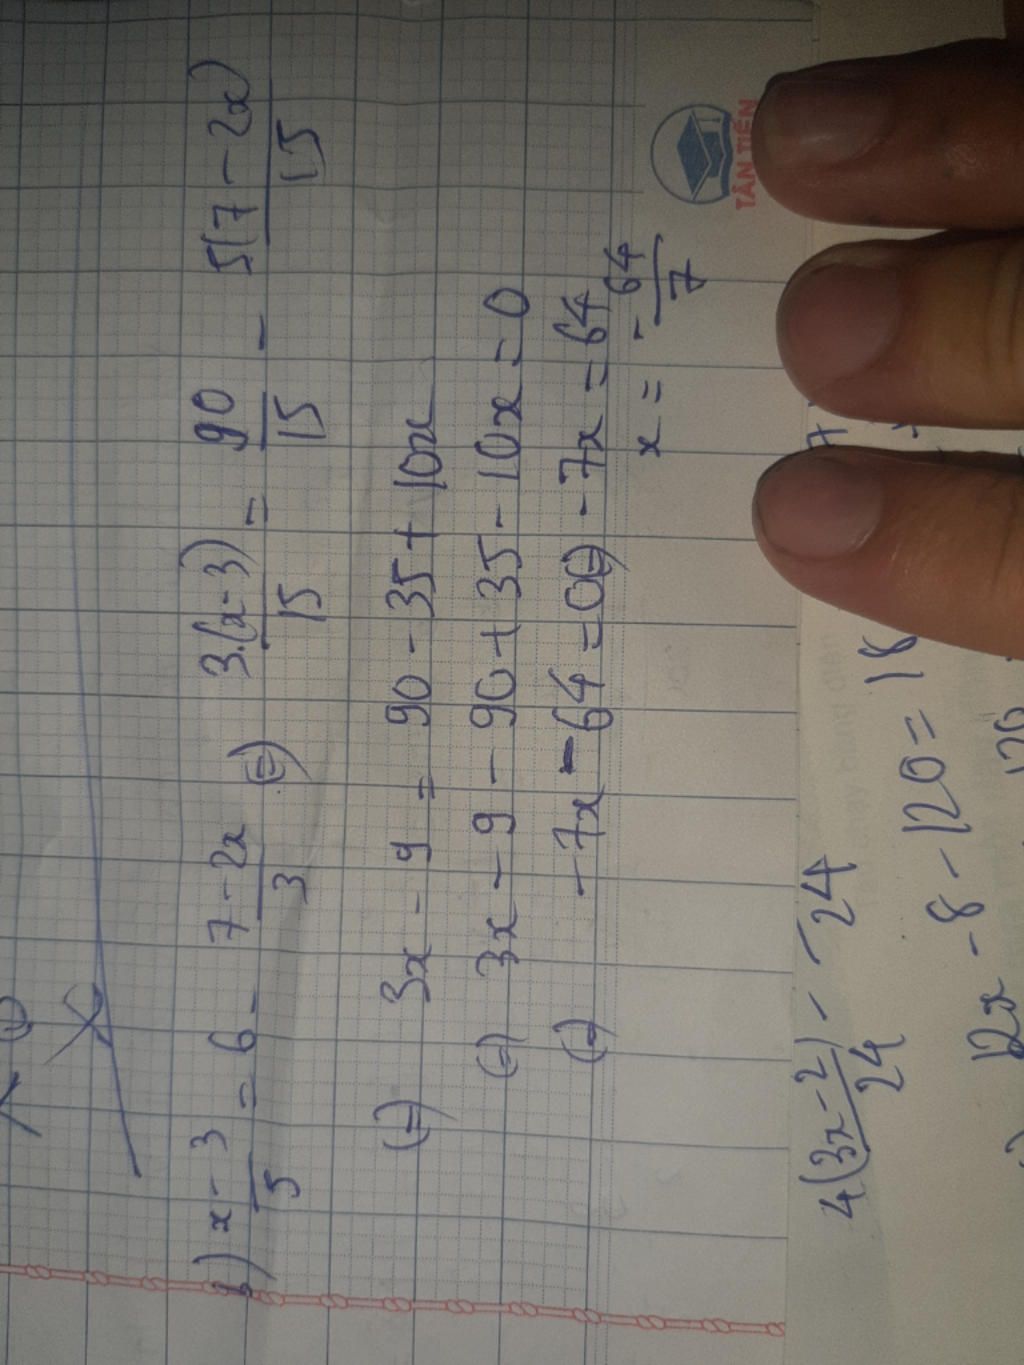 b) x - 3 / 5 = 6 - 7 - 2x / 3 (=) 3.(x-3) / 15 = 90 / 15 - 5(7 - 2x) / 15
(=) 3x - 9 = 90 - 35 + 10x
(=) 3x - 9 - 90 + 35 - 10x = 0
(=) -7x - 64 = 0 (=) -7x = 64
x = - 64 / 7
TÂN TIẾN
4(3x-2) / 24 - 24
12x - 8 - 120 = 18